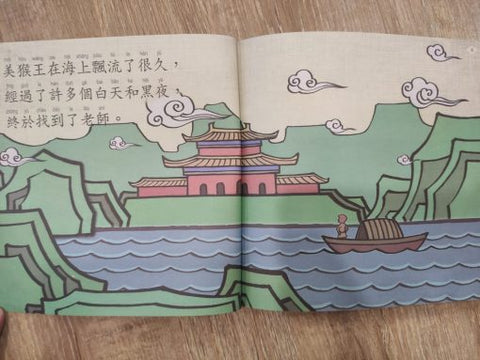 美猴王在海上飄流了很久，
經過了許多個白天和黑夜，
終於找到了老師。